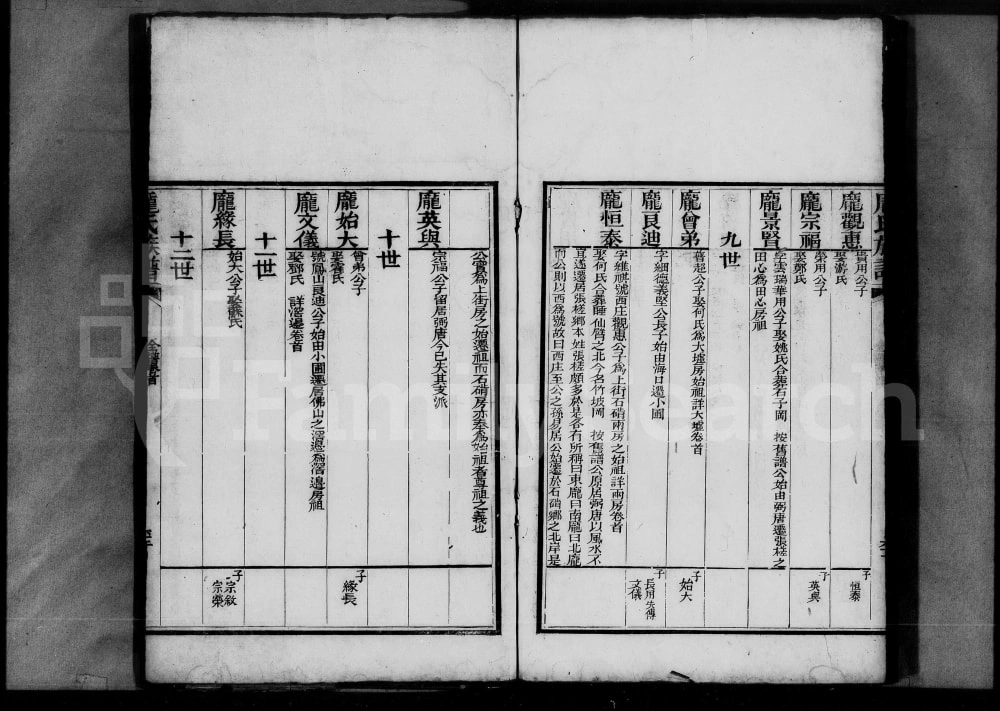 龐氏族譜
龐觀惠
貴用公子
娶游氏
子
恒泰
龐宗福
榮用公子
娶鄭氏
子
英與
龐景賢
字雲瑞華用公子娶姚氏合葬石子岡 按舊譜公始由弼唐遷張槎之
田心為田心房祖
九世
龐曾弟
喜超公子娶何氏為大墟房始祖詳大墟卷首
子
始大
龐良迪
字細德義堅公長子始由海口還小圃
子
長用失傳
文儀
龐恒泰
字維祺號西庄觀惠公子為上街石硝兩房之始祖詳兩房卷首
娶何氏合葬睡仙臂之北今名竹坡岡 按舊譜公原居弼唐以風水不
耳遂遷居張槎鄉本姓張槎頗多於是各有所稱曰東龐曰南龐曰北龐
而公則以西為號故曰西庄至公之孫易居公始遷於石硝鄉之北岸是
公實為上街房之始遷祖而石硝房亦奉為始祖者尊祖之義也
龐英與
宗福公子留居弼唐今已失其支派
十世
龐始大
曾弟公子
娶霍氏
子
緣長
龐文儀
號鳳山良迪公子始由小圃遷居佛山之滘邉為滘邉房祖
娶鄧氏 詳滘邉卷首
十一世
龐緣長
始大公子娶蘇氏
子
宗敘
宗榮
十二世
龐氏族譜
FamilySearch